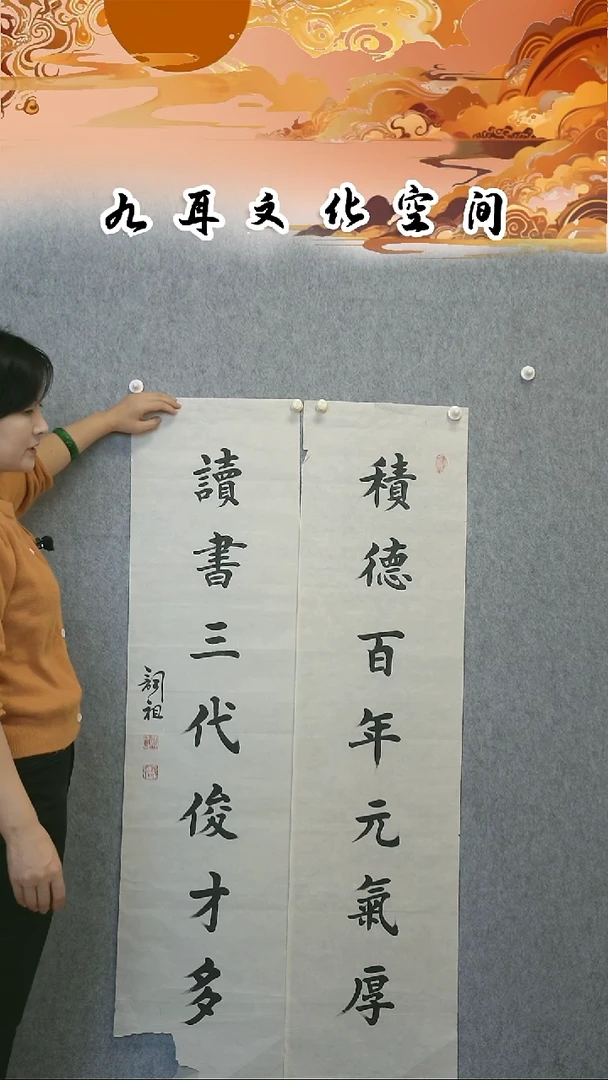 九耳文化空间
積德百年元氣厚
讀書三代俊才多
詞祖